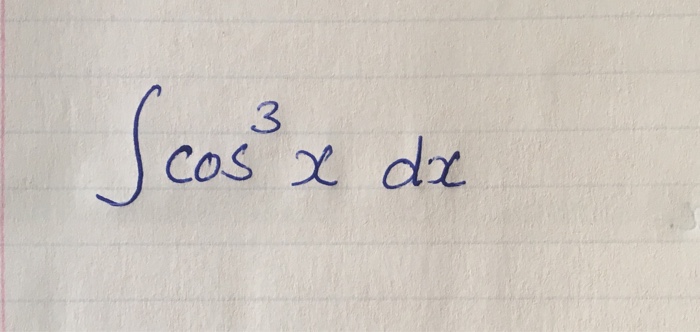 ∫cos³x dx